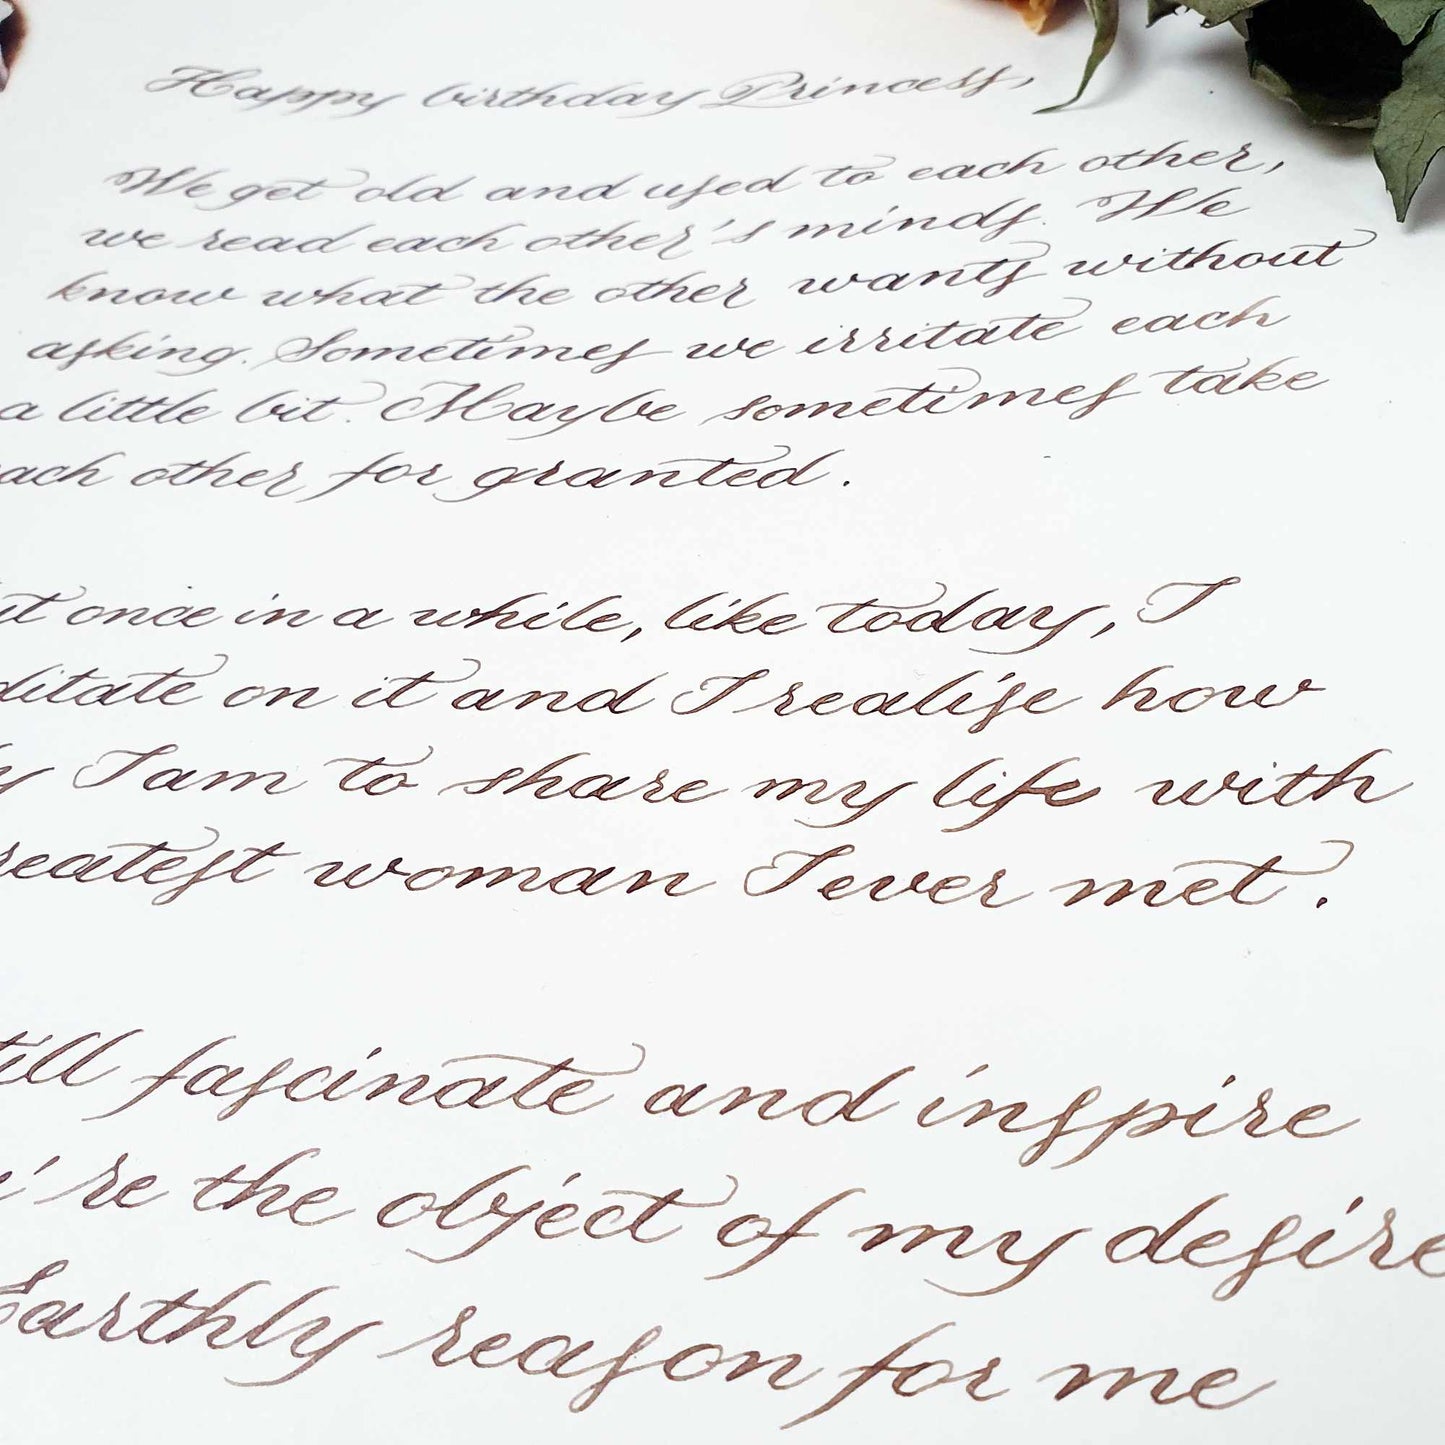 Happy birthday Princess,
We get old and used to each other,
we read each other's minds. We
know what the other wants without
asking. Sometimes we irritate each
a little bit. Maybe sometimes take
each other for granted.
once in a while, like today, I
meditate on it and I realise how
I am to share my life with
greatest woman I ever met.
still fascinate and inspire
you're the object of my desire
Earthly reason for me